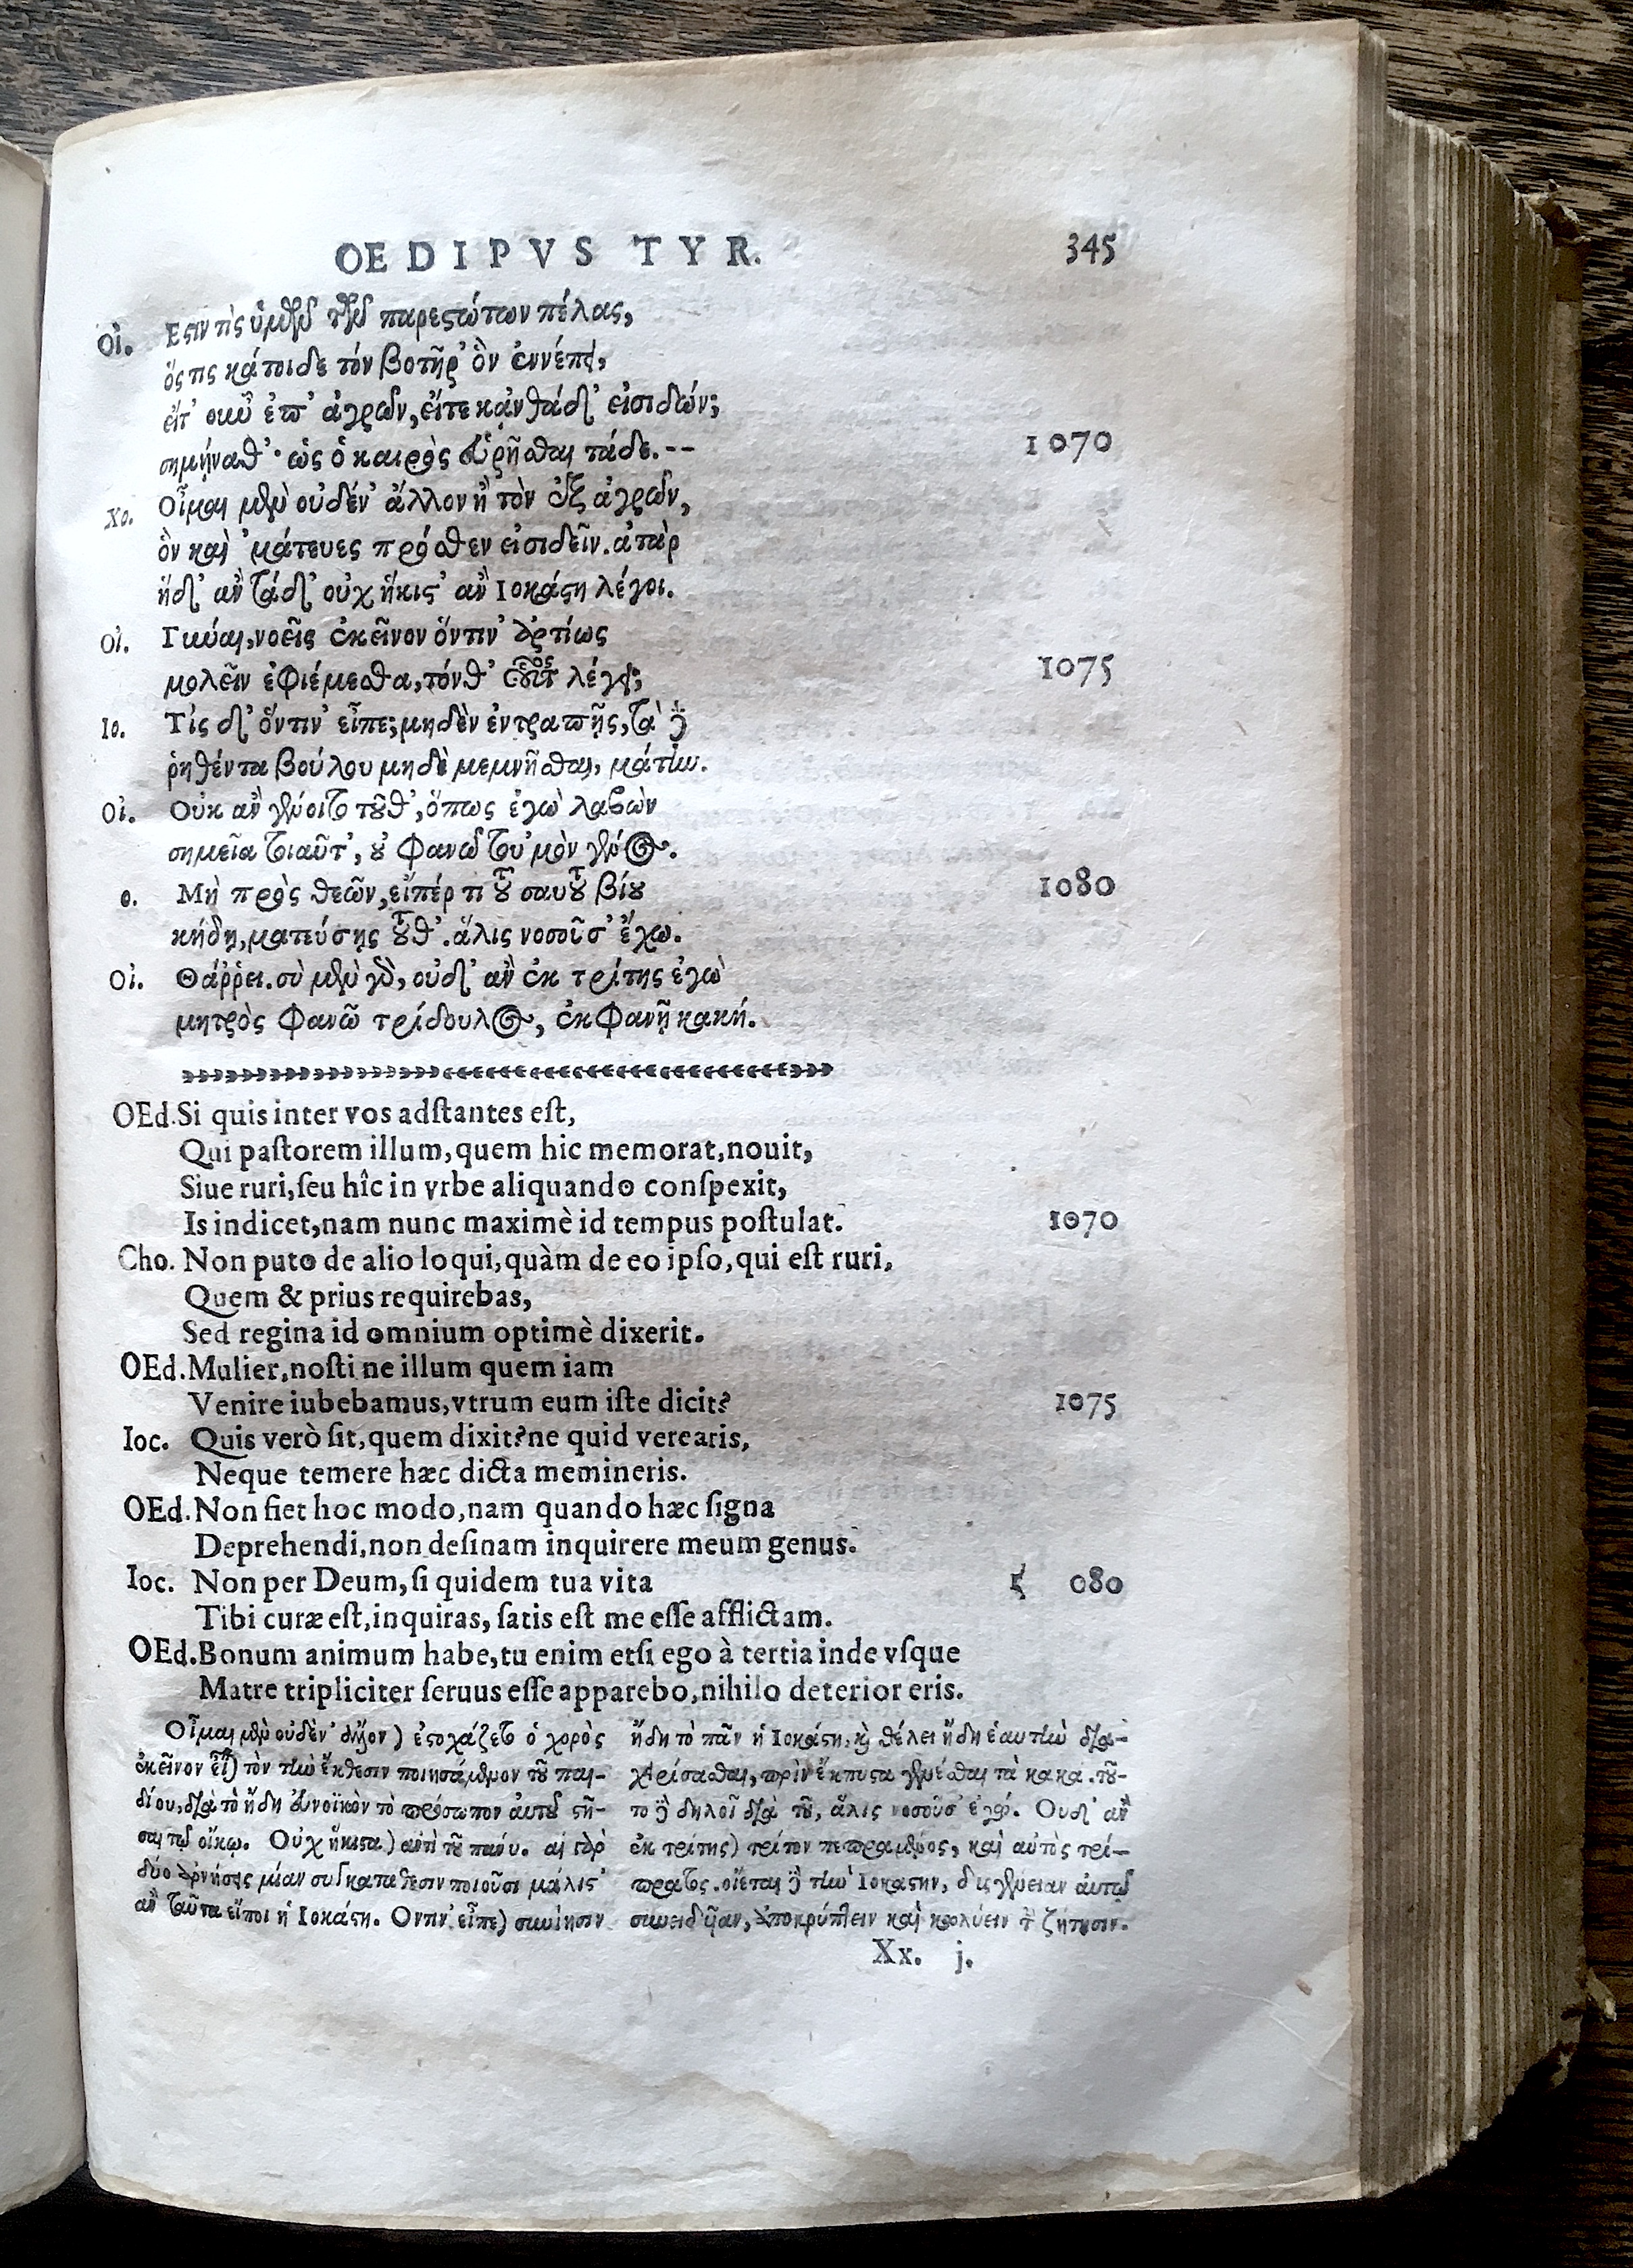 OEDIPVS TYR. 345
Οἰ. Εστιν τὶς ὑμῶν τῶν παρεστώτων πέλας,
ὅς τις κάτοιδε τόν βοτῆρ' ὃν ἐννέπει,
εἴτ' οιωῦ ἐπ' ἀγρῶν, εἴτε κἀνθάδ' εἰσιδών;
σημήναθ'· ὡς ὁ καιρὸς εὑρῆσθαι τάδε.-- 1070
Χο. Οἶμαι μὲν οὐδέν' ἄλλον ἢ τὸν ἐξ ἀγρῶν,
ὃν καὶ 'μάτευες πρόσθεν εἰσιδεῖν. ἀτὰρ
ἥδ' ἂν τάδ' οὐχ ἥκιστ' ἂν Ιοκάστη λέγοι.
Οἰ. Γυναι, νοεῖς ἐκεῖνον ὅντιν' ἀρτίως
μολεῖν ἐφιέμεσθα, τόνθ' οὗτος λέγει; 1075
Ιο. Τίς δ' ὅντιν' εἶπε; μηδὲν ἐντραπῇς, τὰ δὲ
ῥηθέντα βούλου μηδὲ μεμνῆσθαι, μάτην.
Οἰ. Οὐκ ἂν γένοιτο τοῦθ', ὅπως ἐγὼ λαβὼν
σημεῖα τοιαῦτ', οὐ φανῶ τοὐμὸν γένος.
ο. Μὴ πρὸς θεῶν, εἴπέρ τι τοῦ σαυτοῦ βίου 1080
κήδῃ, ματεύσῃς τοῦθ'. ἅλις νοσοῦσ' ἔχω.
Οἰ. Θάῤῥει. σὺ μὲν γὰρ, οὐδ' ἂν ἐκ τρίτης ἐγὼ
μητρὸς φανῶ τρίδουλος, ἐκφανῇ κακή.
OEd. Si quis inter vos adstantes est,
Qui pastorem illum, quem hic memorat, nouit,
Siue ruri, seu hîc in vrbe aliquando conspexit,
Is indicet, nam nunc maximè id tempus postulat. 1070
Cho. Non puto de alio loqui, quàm de eo ipso, qui est ruri,
Quem & prius requirebas,
Sed regina id omnium optimè dixerit.
OEd. Mulier, nosti ne illum quem iam
Venire iubebamus, vtrum eum iste dicit? 1075
Ioc. Quis verò sit, quem dixit? ne quid verearis,
Neque temere hæc dicta memineris.
OEd. Non fiet hoc modo, nam quando hæc signa
Deprehendi, non desinam inquirere meum genus.
Ioc. Non per Deum, si quidem tua vita 080
Tibi curæ est, inquiras, satis est me esse afflictam.
OEd. Bonum animum habe, tu enim etsi ego à tertia inde vsque
Matre tripliciter seruus esse apparebo, nihilo deterior eris.
Οἶμαι μὲν οὐδὲν' ἄλλον) ἐστοχάζετο ὁ χορὸς
ἐκεῖνον εἶναι) τὸν τὴν ἔκθεσιν ποιησάμενον τοῦ παι-
δίου, διὰ τὸ ἤδη εὐνοϊκὸν τὸ πρόσωπον αὐτοῦ
τῷ οἴκῳ. Οὐχ ἥκιστα) ἀντὶ τοῦ πάνυ. αἱ γὰρ
δύο ἀρνήσεις μίαν συγκατάθεσιν ποιοῦσι μάλιστ'
ἂν ταῦτα εἴποι ἡ Ιοκάστη. Οντιν' εἶπε) συνίησιν
ἤδη τὸ πᾶν ἡ Ιοκάστη, καὶ θέλει ἤδη ἑαυτὴν δια-
χρίσασθαι, πρὶν ἔκπυστα γενέσθαι τὰ κακα. τοῦ-
το δὲ δηλοῖ διὰ τοῦ, ἅλις νοσοῦσ' ἐγώ. Ουδ' ἂν
ἐκ τρίτης) τρίτον πεπραμένος, καὶ αὐτὸς τρί-
πρατος. οἴεται δὲ τὴν Ιοκαστην, δυςγένειαν αὐτῷ
συνειδυῖαν, ἀποκρύπτειν καὶ κωλύειν τὴν ζήτησιν.
Xx. j.